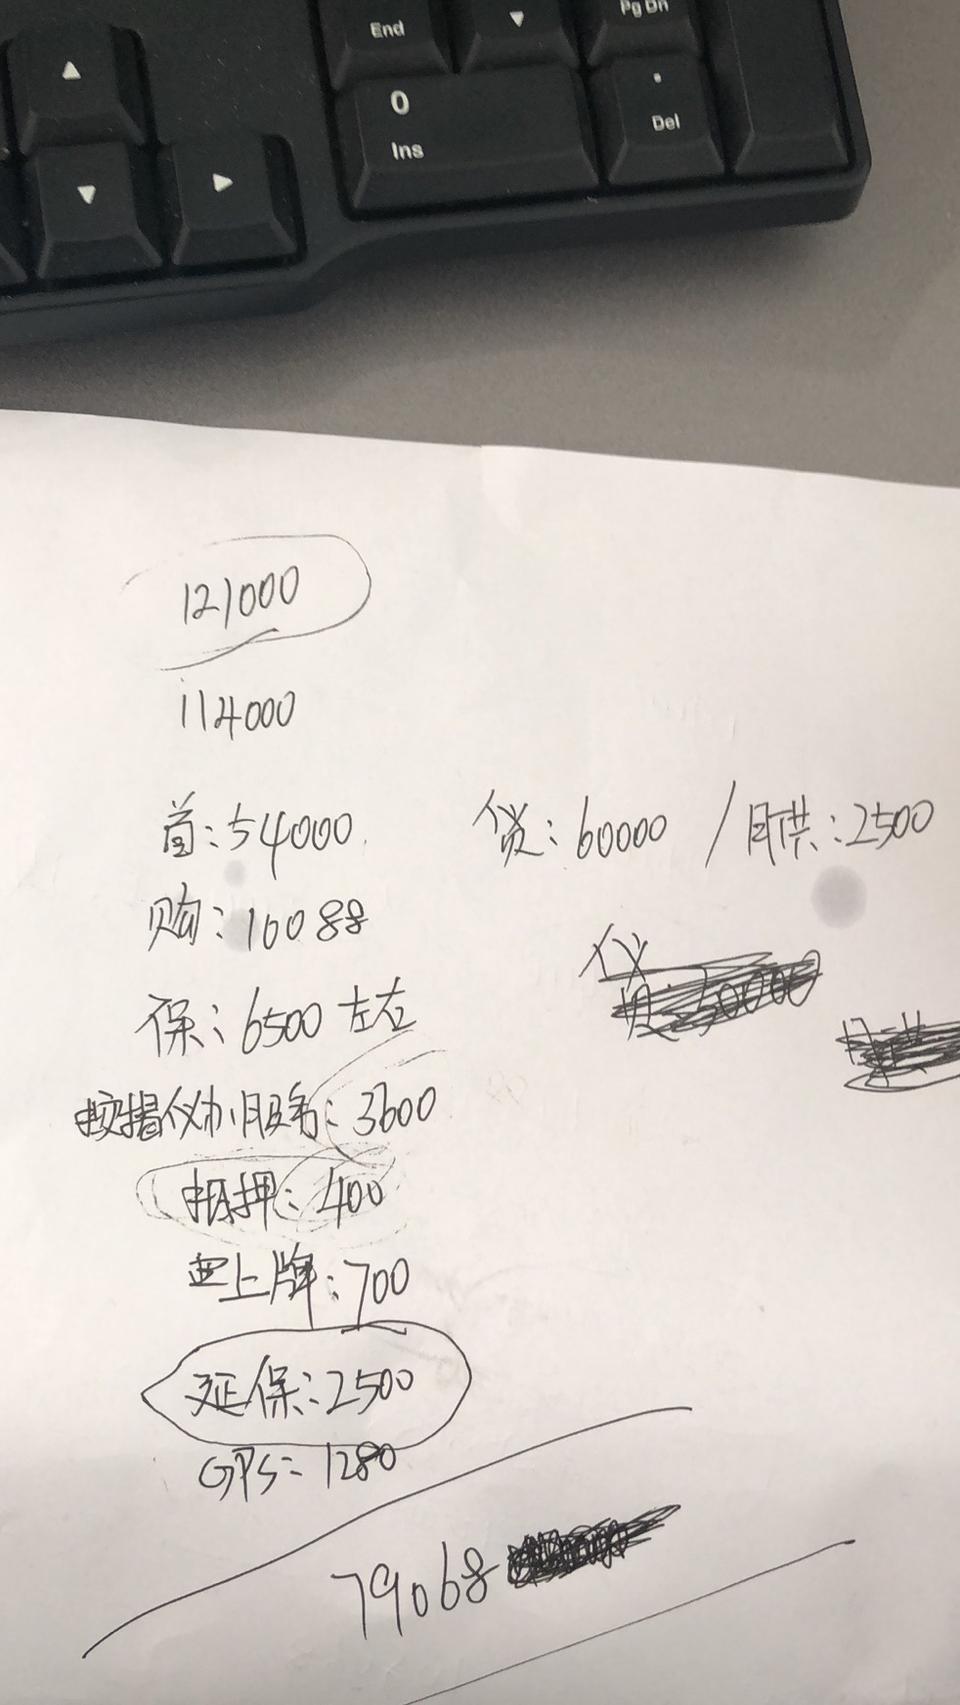 End
Pg Dn
0
Ins
Del
121000
114000
首:54000 贷:60000 / 月供:2500
购:10088
保:6500左右
按揭 服务:3600
抵押:400
上牌:700
延保:2500
GPS:1280
79068